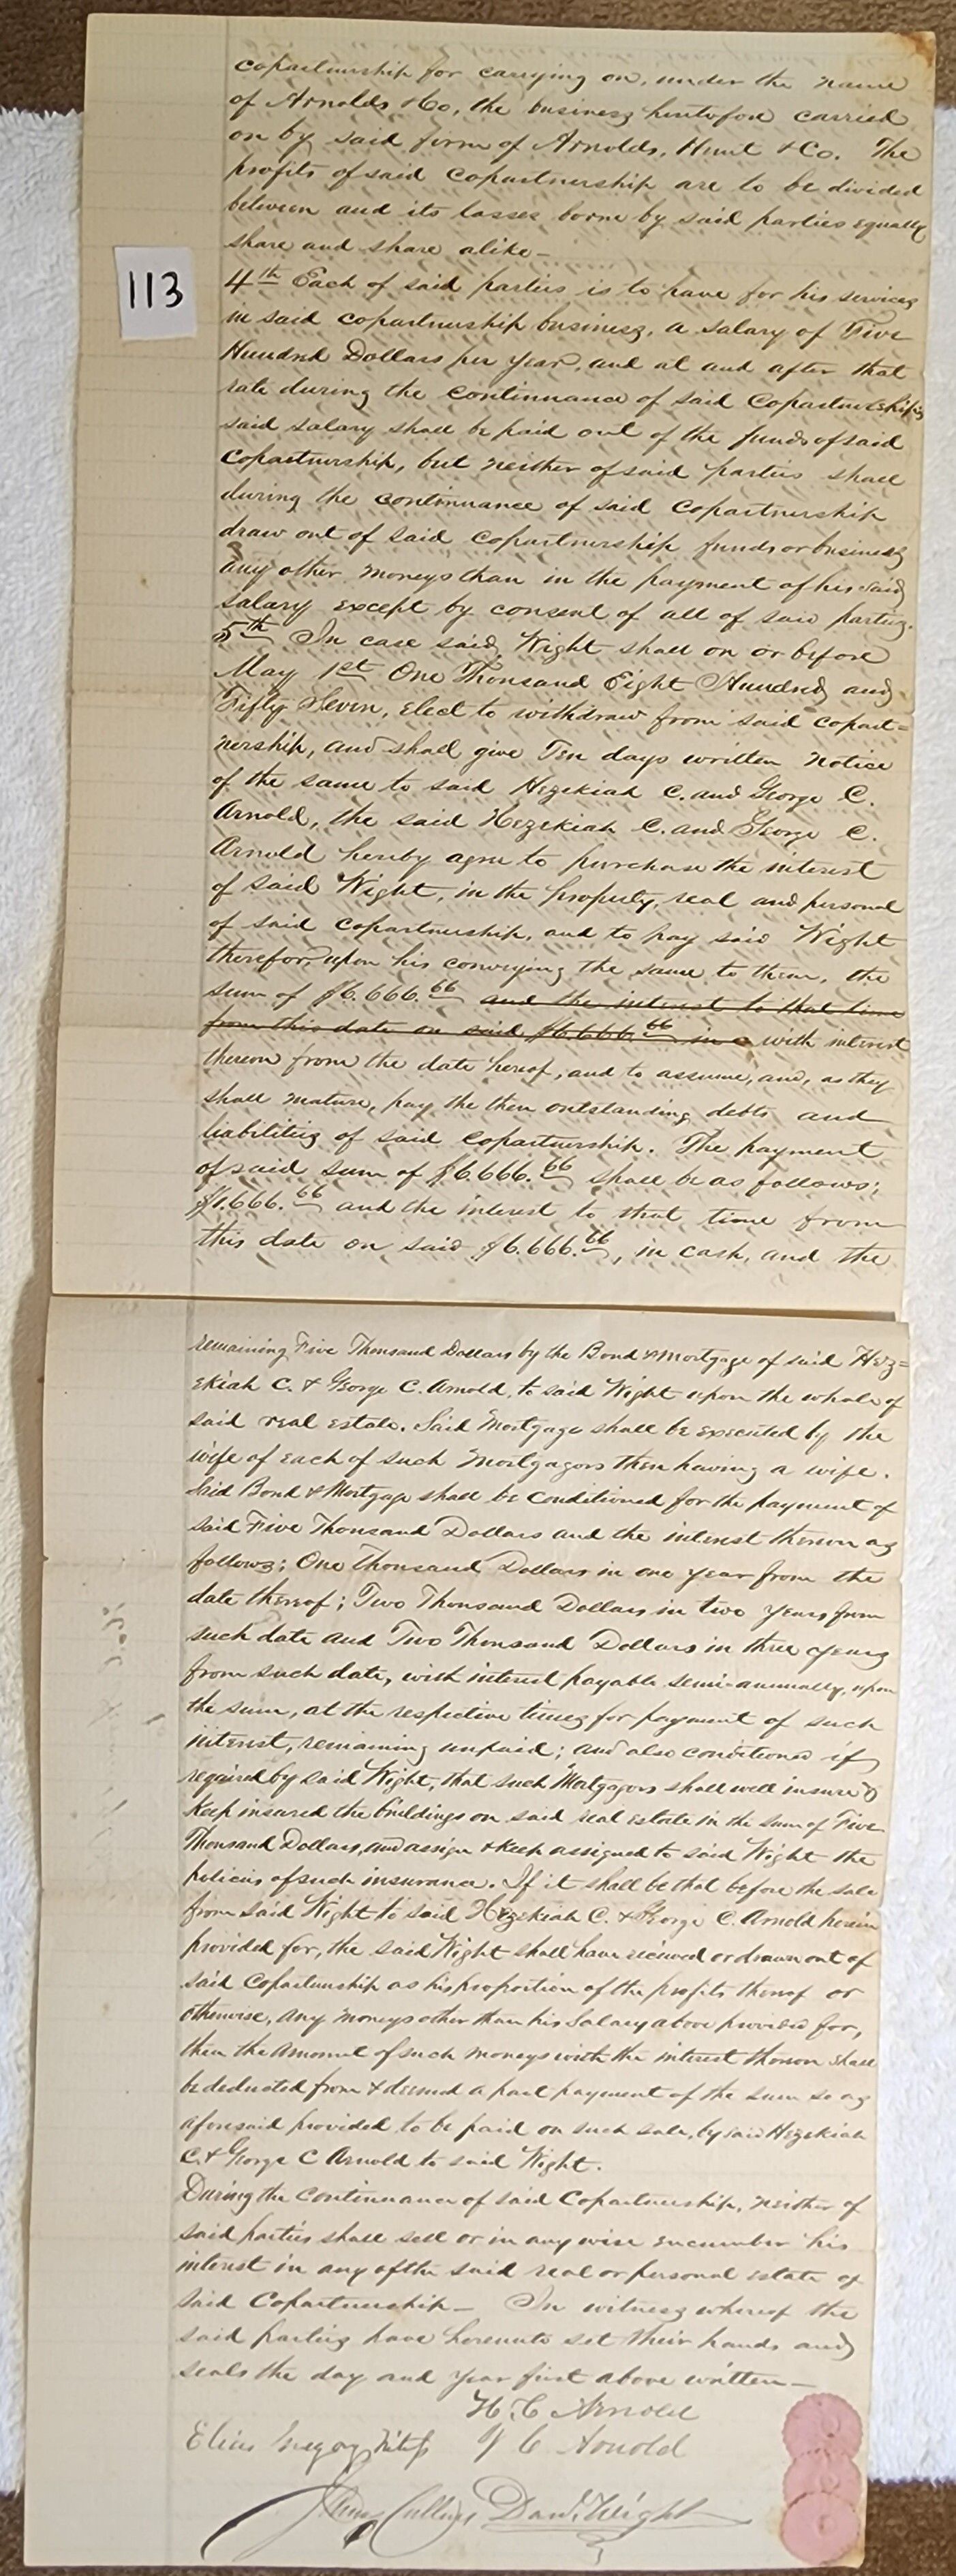 copartnership for carrying on, under the name
of Arnolds & Co, the business heretofore carried
on by said firm of Arnolds, Hunt & Co. The
profits of said copartnership are to be divided
between and its losses borne by said parties equally
share and share alike—
113
4th Each of said parties is to have for his services
in said copartnership business, a salary of Five
Hundred Dollars per year, and at and after that
rate during the continuance of said Copartnership;
said salary shall be paid out of the funds of said
Copartnership, but neither of said parties shall
during the continuance of said Copartnership
draw out of said copartnership funds or business
any other moneys than in the payment of his said
salary except by consent of all of said parties.
5th In case said Wight shall on or before
May 1st One Thousand Eight Hundred and
Fifty Seven, elect to withdraw from said copart=
nership, and shall give Ten days written notice
of the same to said Hezekiah C. and George C.
Arnold, the said Hezekiah C. and George C.
Arnold hereby agree to purchase the interest
of said Wight, in the property, real and personal
of said copartnership, and to pay said Wight
therefor, upon his conveying the same to them, the
sum of $6.666.66 and the interest to that time
from this date on said $6.666.66 in c with interest
thereon from the date hereof, and to assume, and, as they
shall mature, pay the then outstanding debts and
liabilities of said copartnership. The payment
of said sum of $6.666.66 shall be as follows;
$1.666.66 and the interest to that time from
this date on said $6.666.66, in cash, and the
remaining Five Thousand Dollars by the Bond & Mortgage of said Hez=
ekiah C. & George C. Arnold, to said Wight upon the whole of
said real estate. Said Mortgage shall be executed by the
wife of each of such Mortgagors then having a wife.
Said Bond & Mortgage shall be conditioned for the payment of
said Five Thousand Dollars and the interest thereon as
follows; One Thousand Dollars in one year from the
date thereof; Two Thousand Dollars in two years from
such date and Two Thousand Dollars in three years
from such date, with interest payable semi-annually, upon
the sum, at the respective times for payment of such
interest, remaining unpaid; and also conditioned if
required by said Wight, that such Mortgagors shall well insure &
keep insured the buildings on said real estate in the sum of Five
Thousand Dollars, and assign & keep assigned to said Wight the
policies of such insurance. If it shall be that before the sale
from said Wight to said Hezekiah C. & George C. Arnold herein
provided for, the said Wight shall have received or drawn out of
said Copartnership as his proportion of the profits thereof or
otherwise, any moneys other than his Salary above provided for,
then the amount of such moneys with the interest thereon shall
be deducted from & deemed a part payment of the sum so as
aforesaid provided to be paid on such sale, by said Hezekiah
C. & George C Arnold to said Wight.
During the continuance of said Copartnership, neither of
said parties shall sell or in any wise encumber his
interest in any of the said real or personal estate of
said Copartnership— In witness whereof the
said parties have hereunto set their hands and
seals the day and year first above written—
H. C Arnold
Elias Gregory G C Arnold
Danl. Wight